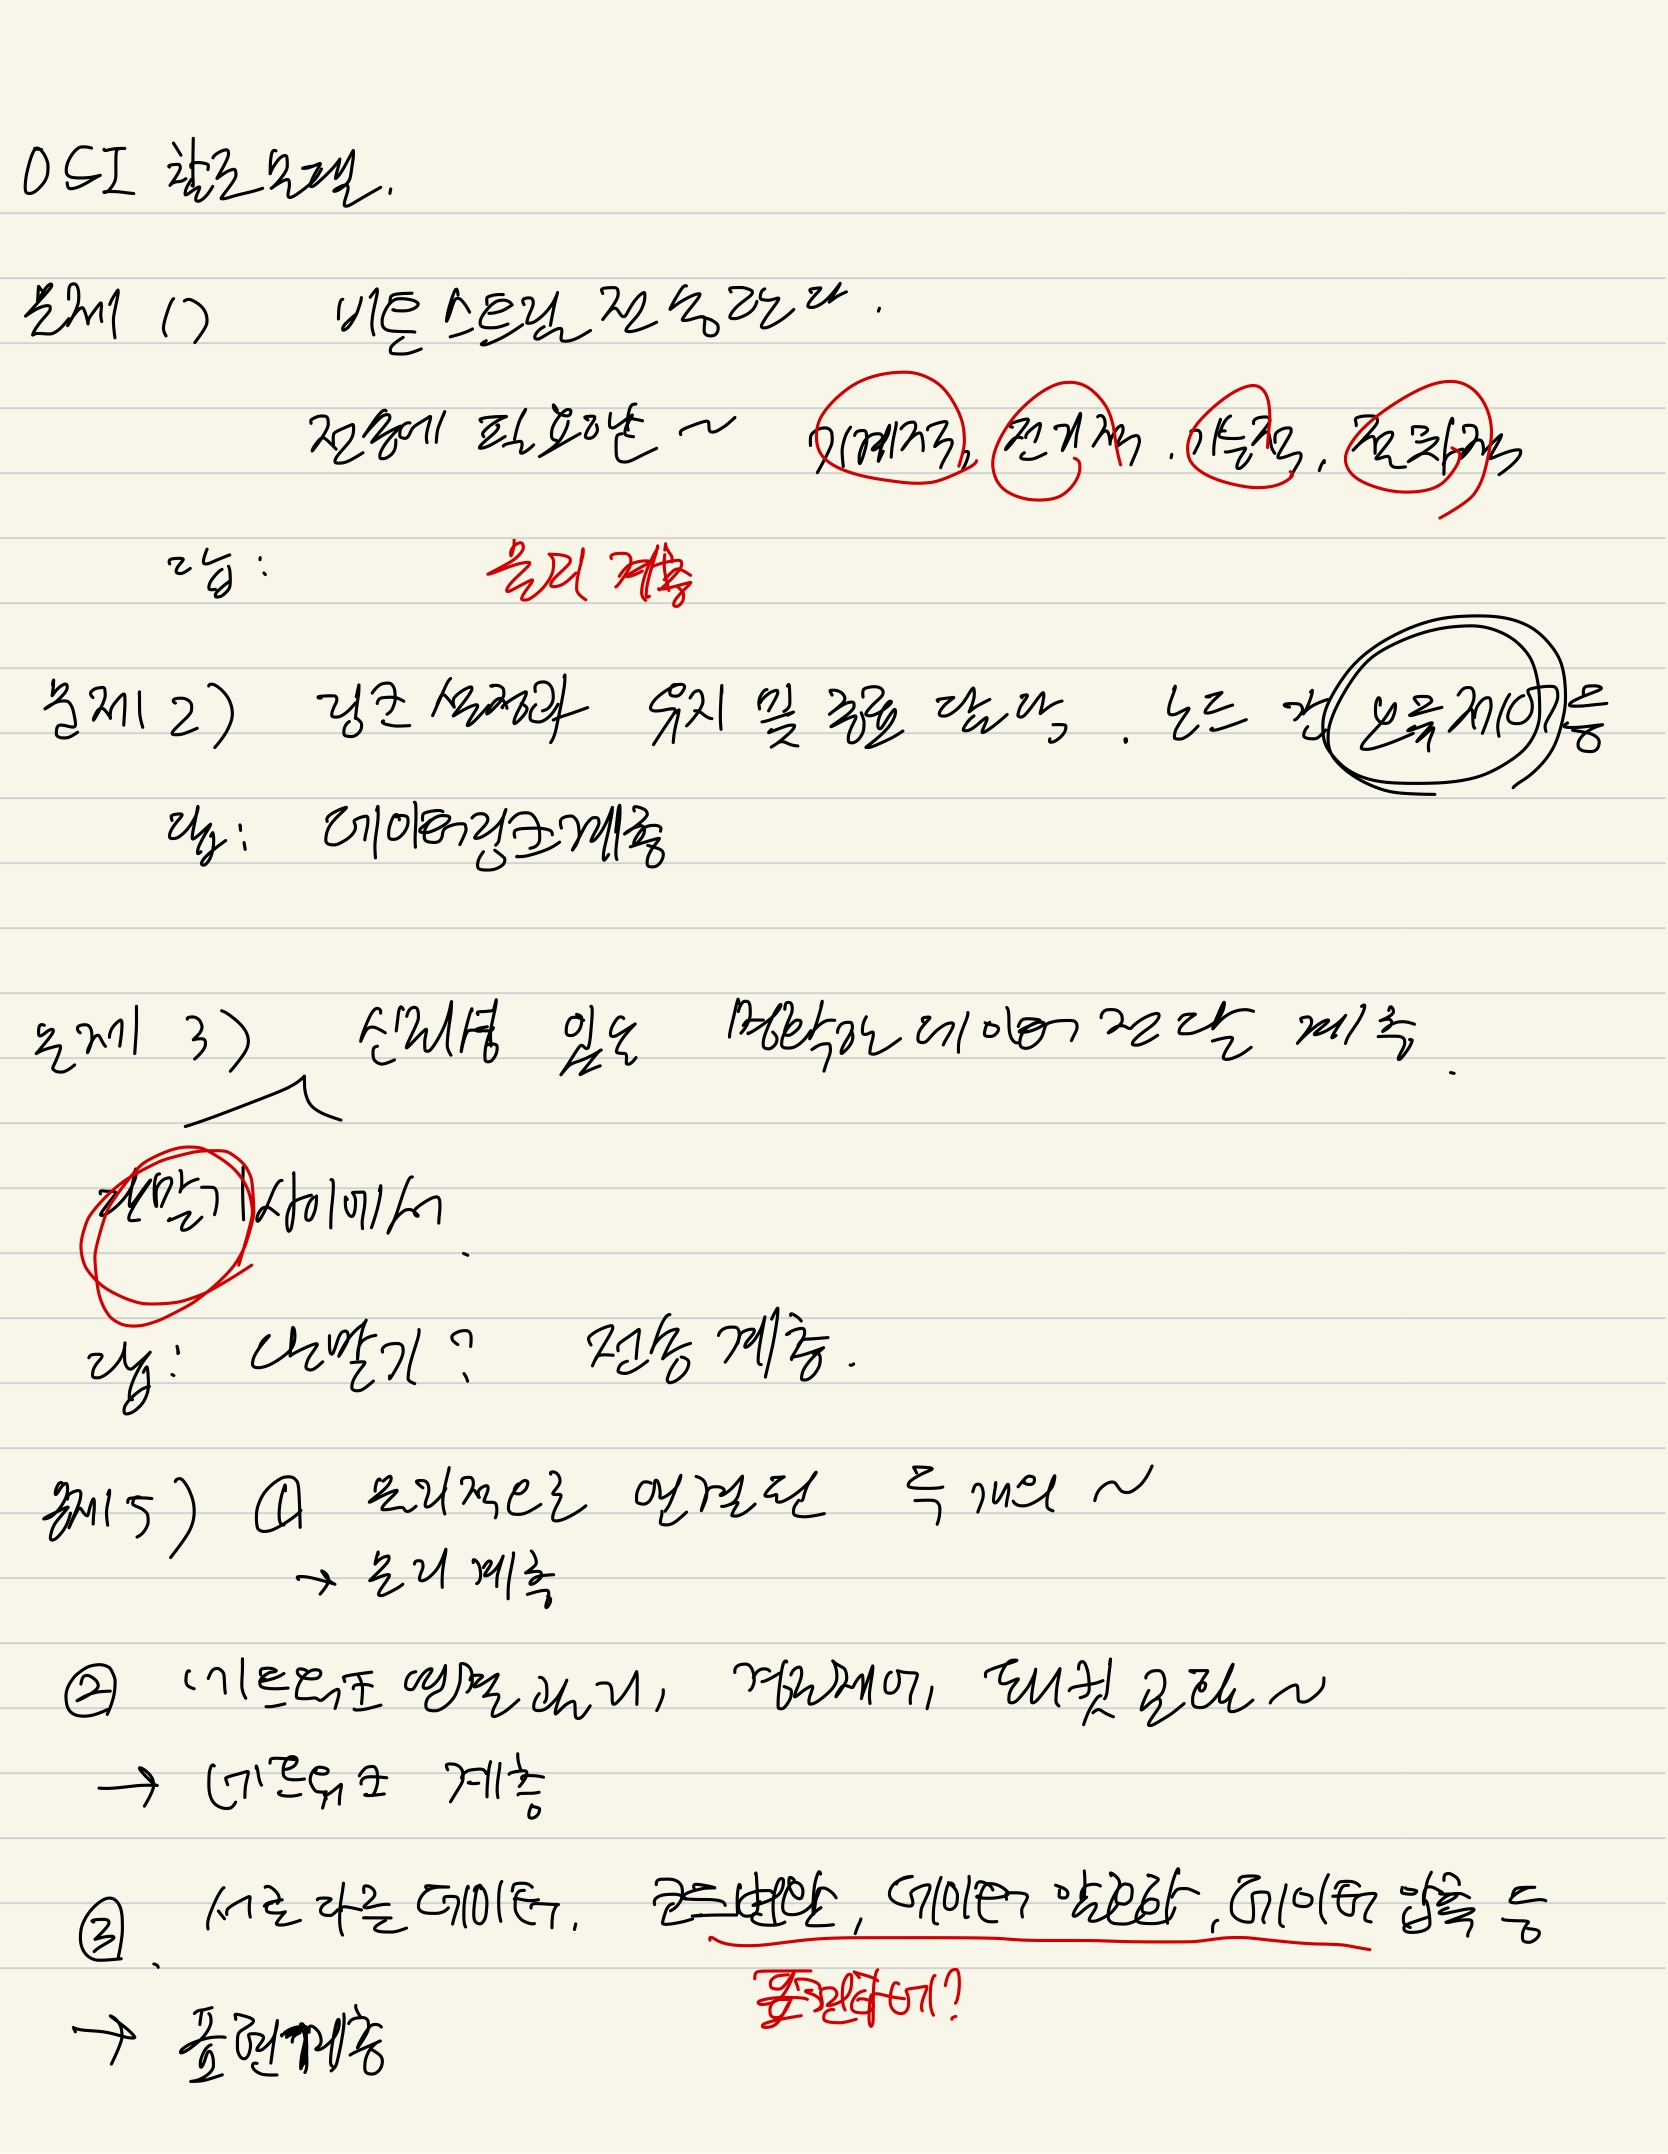 OSI 참조 모델.
문제 1) 비트 스트림 전송한다.
전송에 필요한 ~ 기계적, 전기적, 기능적, 절차적
답: 물리 계층
문제 2) 링크 설정과 유지 및 종료 담당. 노드 간 오류제어 등
답: 데이터링크계층
문제 3) 신뢰성 있는 명확한 데이터 전달 계층.
단말기 사이에서.
답: 단말기? 전송 계층.
문제 5) ① 물리적으로 연결된 두 개의 ~
→ 물리 계층
② 네트워크 연결 관리, 경로제어, 패킷 교환 ~
→ 네트워크 계층
③. 서로 다른 데이터, 코드변환, 데이터 암호화, 데이터 압축 등
→ 표현계층